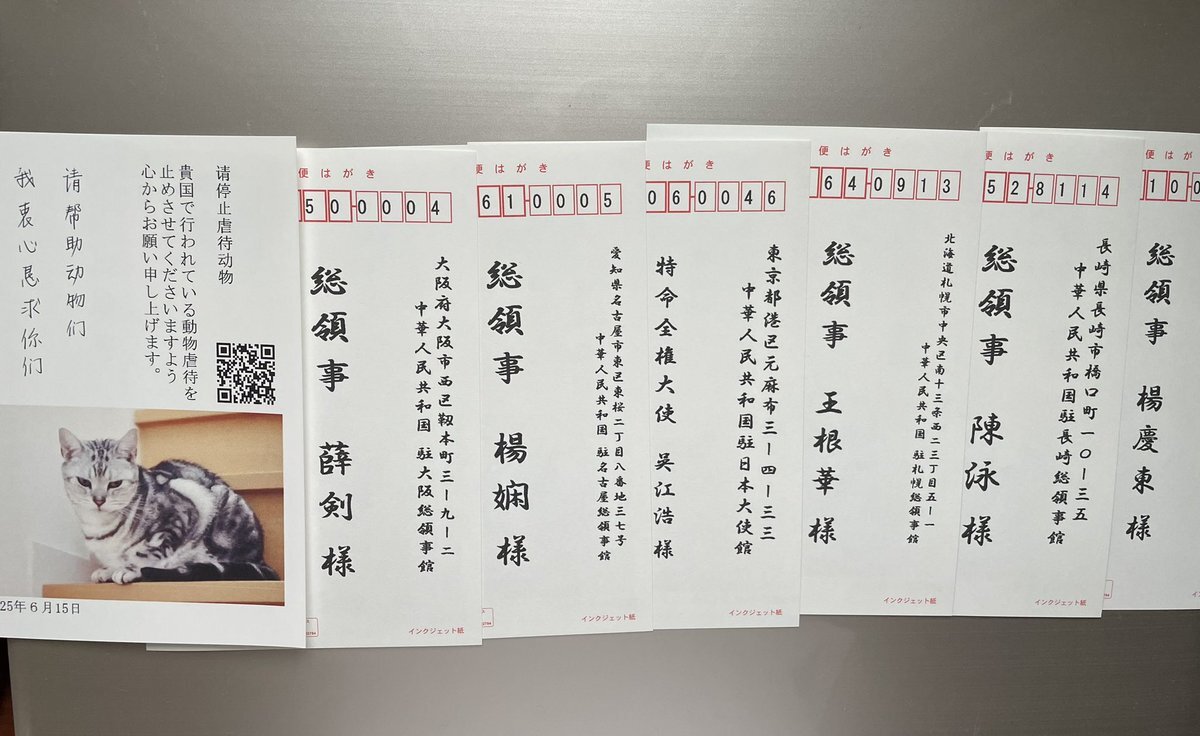 请停止虐待动物
貴国で行われている動物虐待を
止めさせてくださいますよう
心からお願い申し上げます。
请帮助动物们
我衷心恳求你们
25年6月15日
便はがき
50-0004
大阪府大阪市西区靱本町三ー九ー二
中華人民共和国 駐大阪総領事館
総領事 薛剣 様
インクジェット紙
便はがき
61-0005
愛知県名古屋市東区東桜二丁目八番地三七号
中華人民共和国 駐名古屋総領事館
総領事 楊嫻 様
インクジェット紙
便はがき
06-0046
東京都港区元麻布三ー四ー三三
中華人民共和国駐日本大使館
特命全権大使 呉江浩 様
インクジェット紙
便はがき
64-0913
北海道札幌市中央区南十三条西二三丁目五ー一
中華人民共和国 駐札幌総領事館
総領事 王根華 様
インクジェット紙
便はがき
52-8114
長崎県長崎市橋口町一〇ー三五
中華人民共和国駐長崎総領事館
総領事 陳泳 様
インクジェット紙
便はがき
10-0
総領事 楊慶東 様